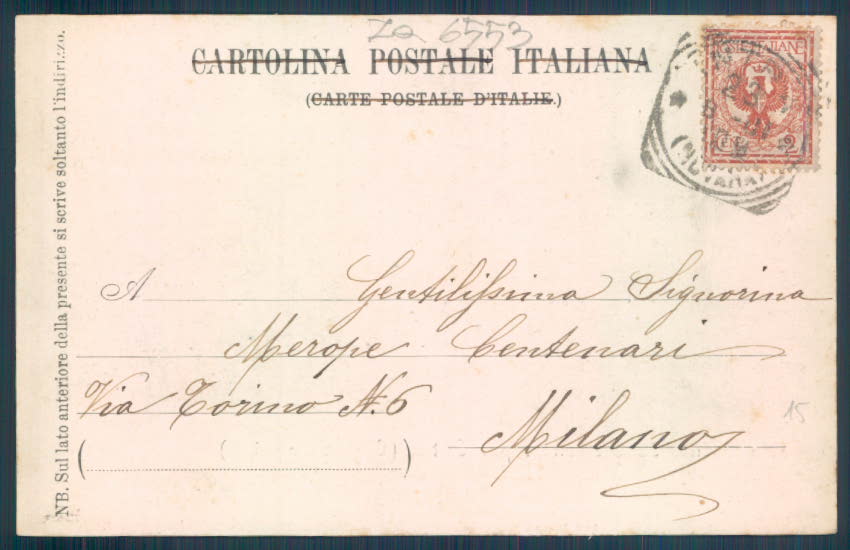 za 6553
CARTOLINA POSTALE ITALIANA
(CARTE POSTALE D'ITALIE.)
NB. Sul lato anteriore della presente si scrive soltanto l'indirizzo.
2
(NOVARA)
A Gentilissima Signorina
Merope Centenari
Via Torino N. 6
Milano
15